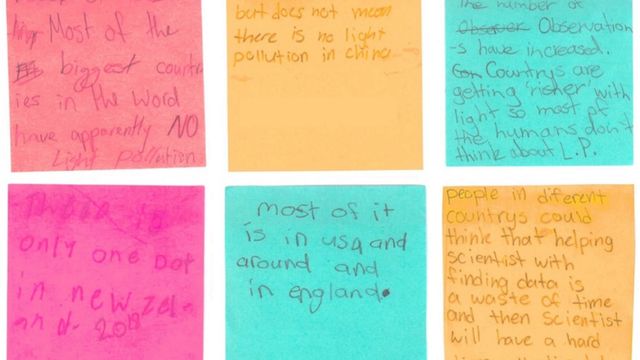 Most of the
biggest countr
ies in the Word
have apparently NO
Light pollution
but does not mean
there is no light
pollution in china
the number of
Observation
-s have increased.
Countrys are
getting 'risher' with
light so most of
the humans don't
think about L.P.
There is
only one Dot
in new zel-
and. 2018
most of it
is in usa and
around and
in england.
people in diferent
countrys could
think that helping
scientist with
finding data is
a waste of time
and then scientist
will have a hard